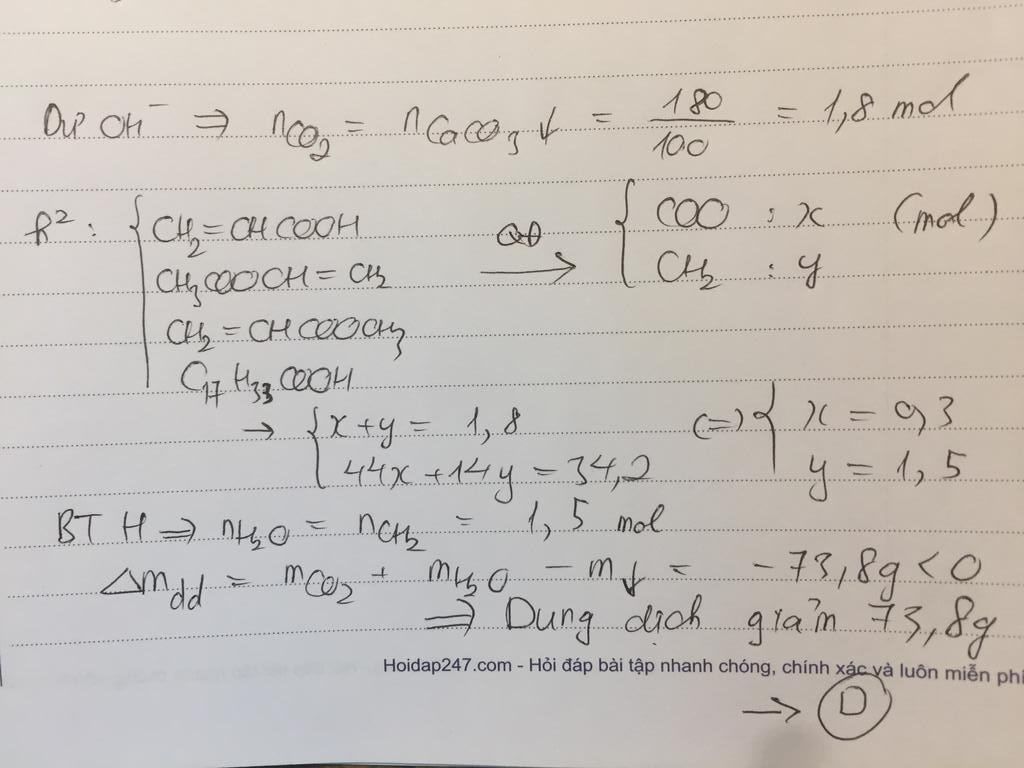 Dư OH⁻ ⇒ nCO₂ = nCaCO₃↓ = 180/100 = 1,8 mol
h² : { CH₂=CHCOOH → { COO : x (mol)
CH₃COOCH=CH₂ CH₂ : y
CH₂=CHCOOCH₃
C₁₇H₃₃COOH
→ { x+y = 1,8 (=) { x = 0,3
44x+14y = 34,2 y = 1,5
BT H ⇒ nH₂O = nCH₂ = 1,5 mol
Δmdd = mCO₂ + mH₂O − m↓ = −73,8g < 0
⇒ Dung dịch giảm 73,8g
Hoidap247.com - Hỏi đáp bài tập nhanh chóng, chính xác và luôn miễn phí
→ D